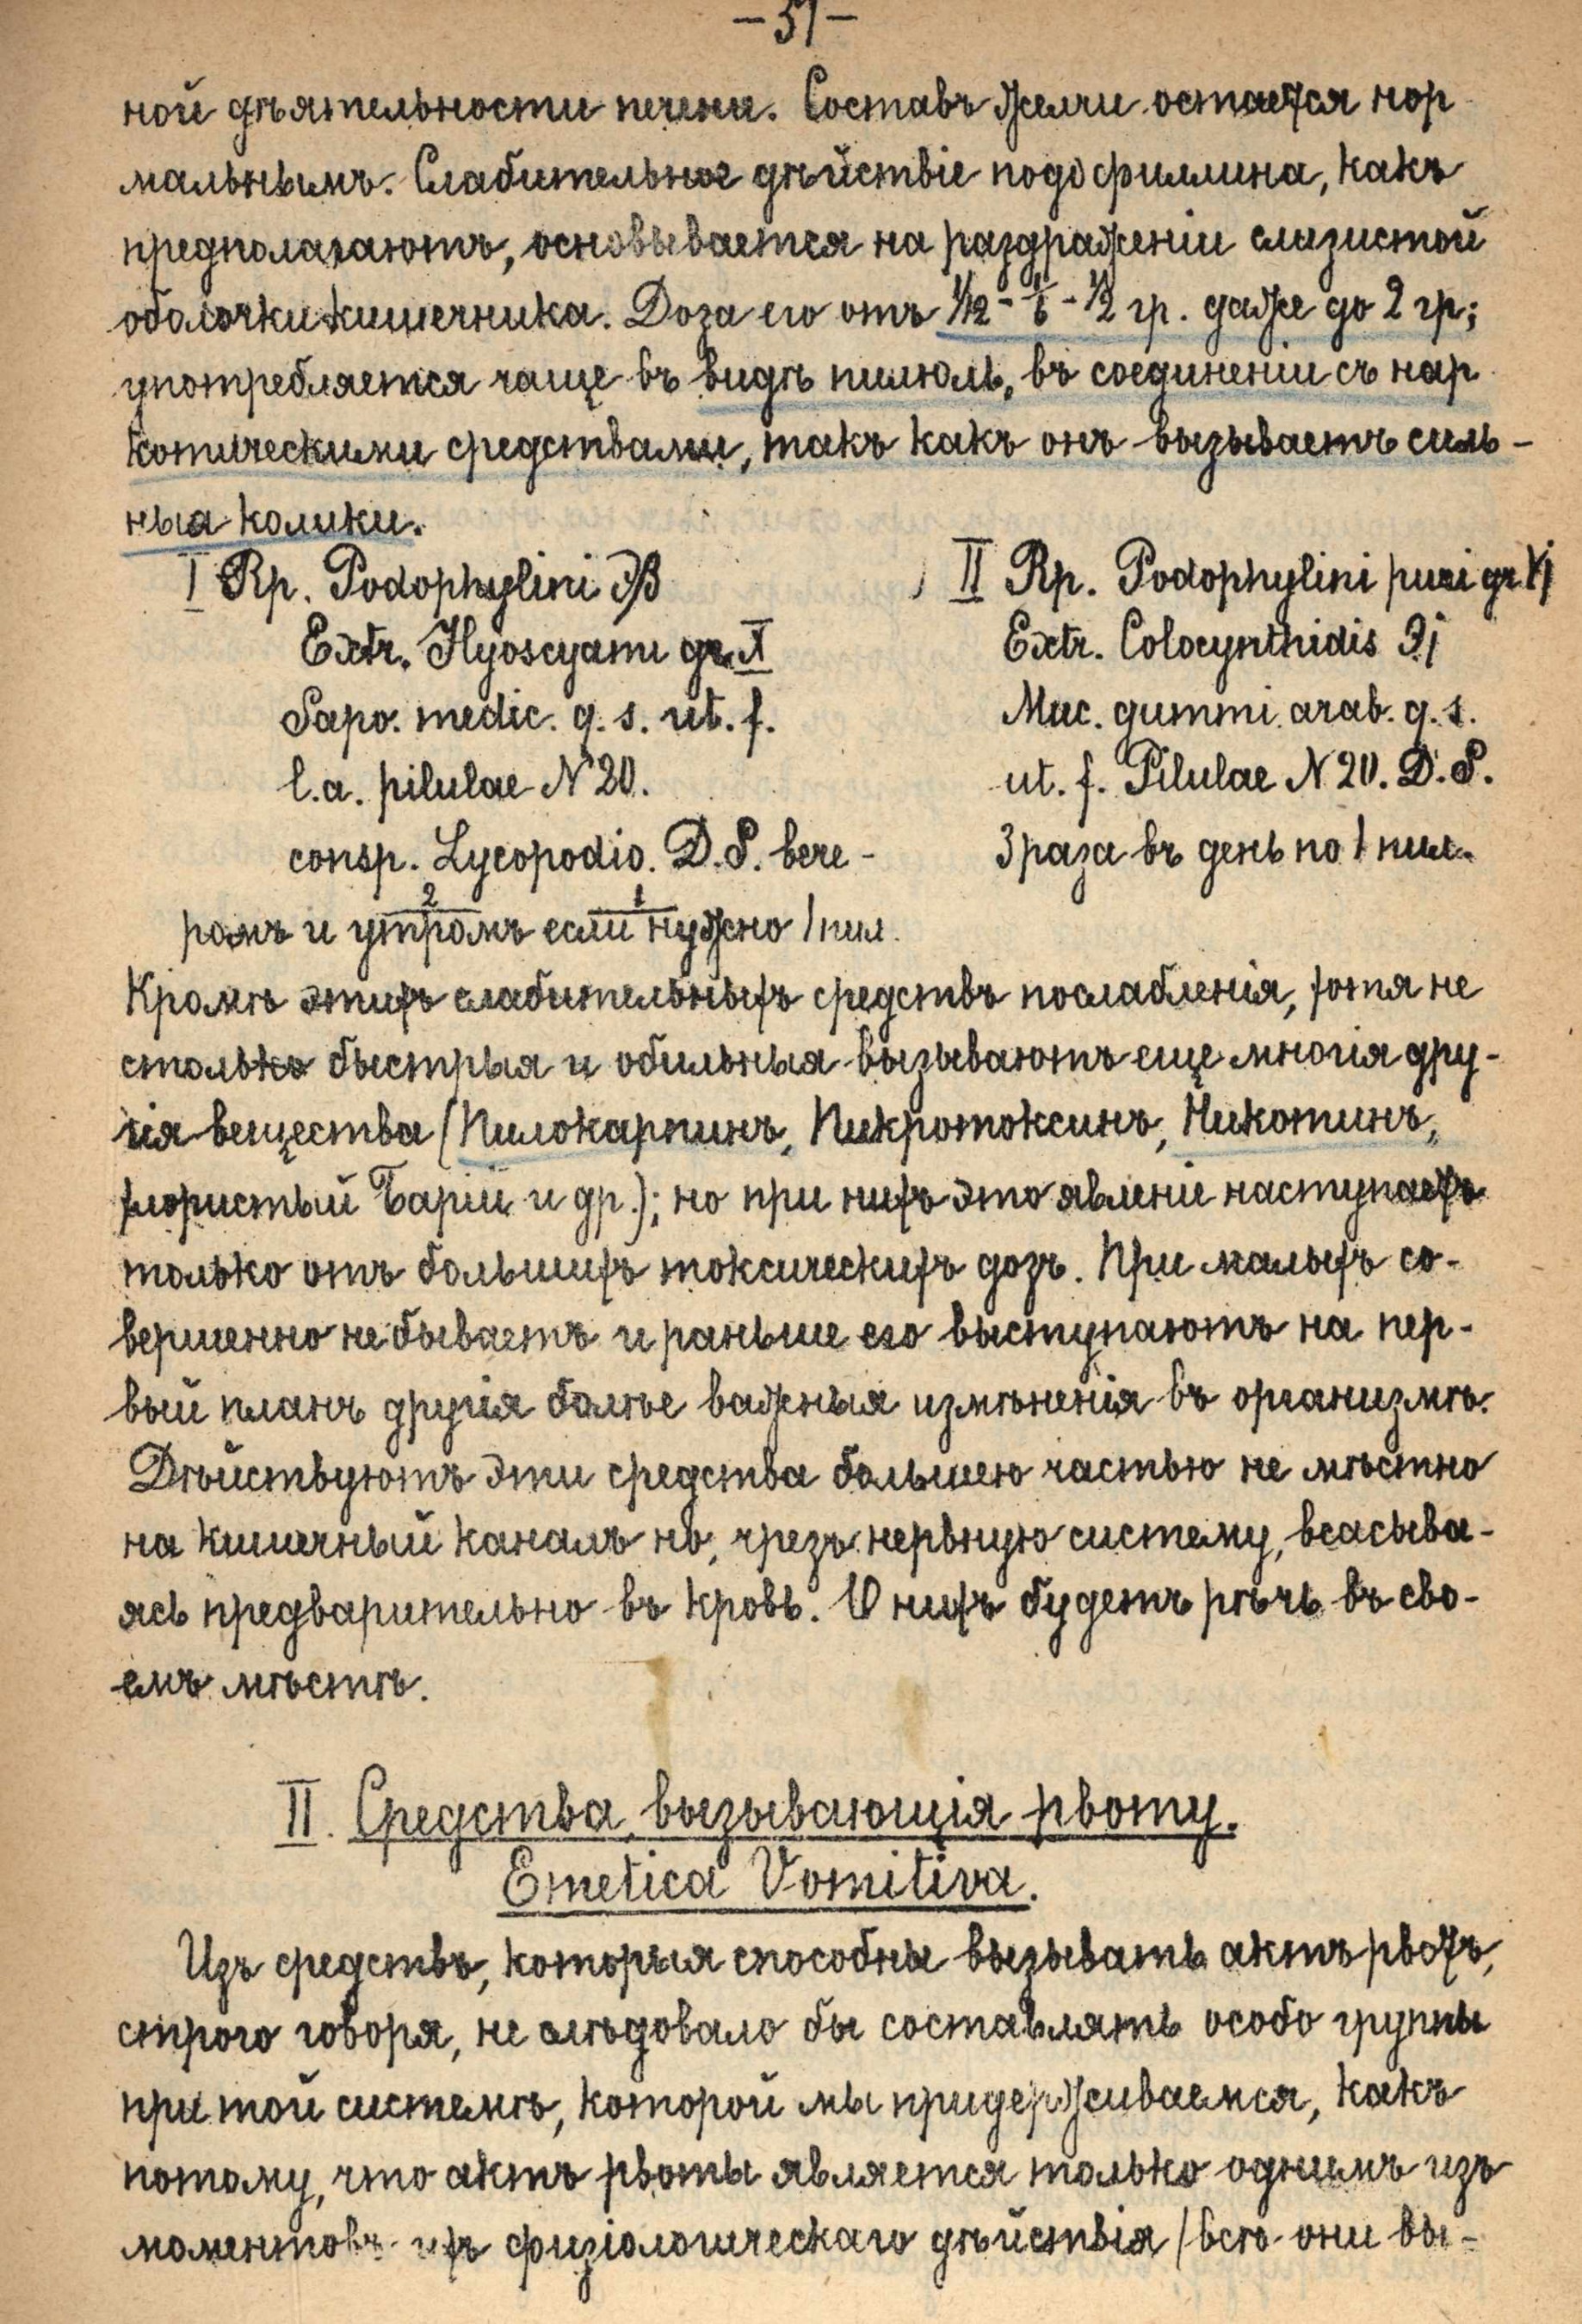 –51–
ной дѣятельности печени. Составъ желчи остается нор
мальнымъ. Слабительное дѣйствіе подофиллина, какъ
предполагаютъ, основывается на раздраженіи слизистой
оболочки кишечника. Доза его отъ 1/12 – 1/6 – 1/2 гр. даже до 2 гр;
употребляется чаще въ видѣ пилюль, въ соединеніи съ нар
котическими средствами, такъ какъ онъ вызываетъ силь-
ныя колики.
I Rp. Podophylini ℈β
Extr. Hyoscyami gr. X
Sapo. medic. q. s. ut. f.
l. a. pilulae N 20.
consp. Lycopodio. D. S. вече-
ромъ 2 и утромъ если 1 нужно 1 пил.
II Rp. Podophylini puri gr Vj
Extr. Colocynthidis ℈j
Muc. gummi arab. q. s.
ut. f. Pilulae N 20. D. S.
3 раза въ день по 1 пил.
Кромѣ этихъ слабительныхъ средствъ послабленія, хотя не
столько быстрыя и обильныя вызываютъ еще многія дру-
гія вещества (Пилокарпинъ, Пикротоксинъ, Никотинъ,
хлористый Барій и др.); но при нихъ это явленіе наступаетъ
только отъ большихъ токсическихъ дозъ. При малыхъ со-
вершенно не бываетъ и раньше его выступаютъ на пер-
вый планъ другія болѣе важныя измѣненія въ организмѣ.
Дѣйствуютъ эти средства большею частью не мѣстно
на кишечный каналъ но, чрезъ нервную систему, всасыва-
ясь предварительно въ кровь. О нихъ будетъ рѣчь въ сво-
емъ мѣстѣ.
II. Средства, вызывающія рвоту.
Emetica Vomitiva.
Изъ средствъ, которыя способны вызывать актъ рвотъ,
строго говоря, не слѣдовало бы составлять особо группы
при той системѣ, которой мы придерживаемся, какъ
потому, что актъ рвоты является только однимъ изъ
моментовъ ихъ физіологическаго дѣйствія (всѣ они вы-